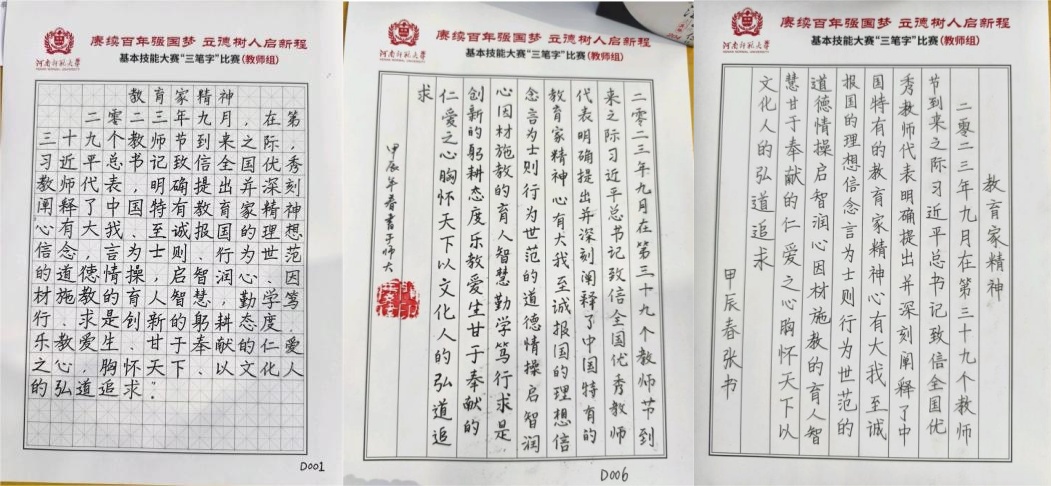 河南师范大学
HENAN NORMAL UNIVERSITY
赓续百年强国梦 立德树人启新程
基本技能大赛“三笔字”比赛(教师组)
教育家精神
二零二三年九月，在第
三十九个教师节到来之际，
习近平总书记致信全国优秀
教师代表，明确提出并深刻
阐释了中国特有教育家精神
心有大我、至诚报国的理想
信念，言为士则、行为世范
的道德情操，启智润心、因
材施教的育人智慧，勤学笃
行、求是创新的躬耕态度，
乐教爱生、甘于奉献的仁爱
之心，胸怀天下、以文化人
的弘道追求。”
D001
河南师范大学
HENAN NORMAL UNIVERSITY
赓续百年强国梦 立德树人启新程
基本技能大赛“三笔字”比赛(教师组)
二零二三年九月在第三十九个教师节到
来之际习近平总书记致信全国优秀教师
代表明确提出并深刻阐释了中国特有的
教育家精神心有大我至诚报国的理想信
念言为士则行为世范的道德情操启智润
心因材施教的育人智慧勤学笃行求是
创新的躬耕态度乐教爱生甘于奉献的
仁爱之心胸怀天下以文化人的弘道追
求
甲辰年春书于师大
D006
河南师范大学
HENAN NORMAL UNIVERSITY
赓续百年强国梦 立德树人启新程
基本技能大赛“三笔字”比赛(教师组)
教育家精神
二零二三年九月在第三十九个教师
节到来之际习近平总书记致信全国优
秀教师代表明确提出并深刻阐释了中
国特有的教育家精神心有大我至诚
报国的理想信念言为士则行为世范的
道德情操启智润心因材施教的育人智
慧甘于奉献的仁爱之心胸怀天下以
文化人的弘道追求
甲辰春张书